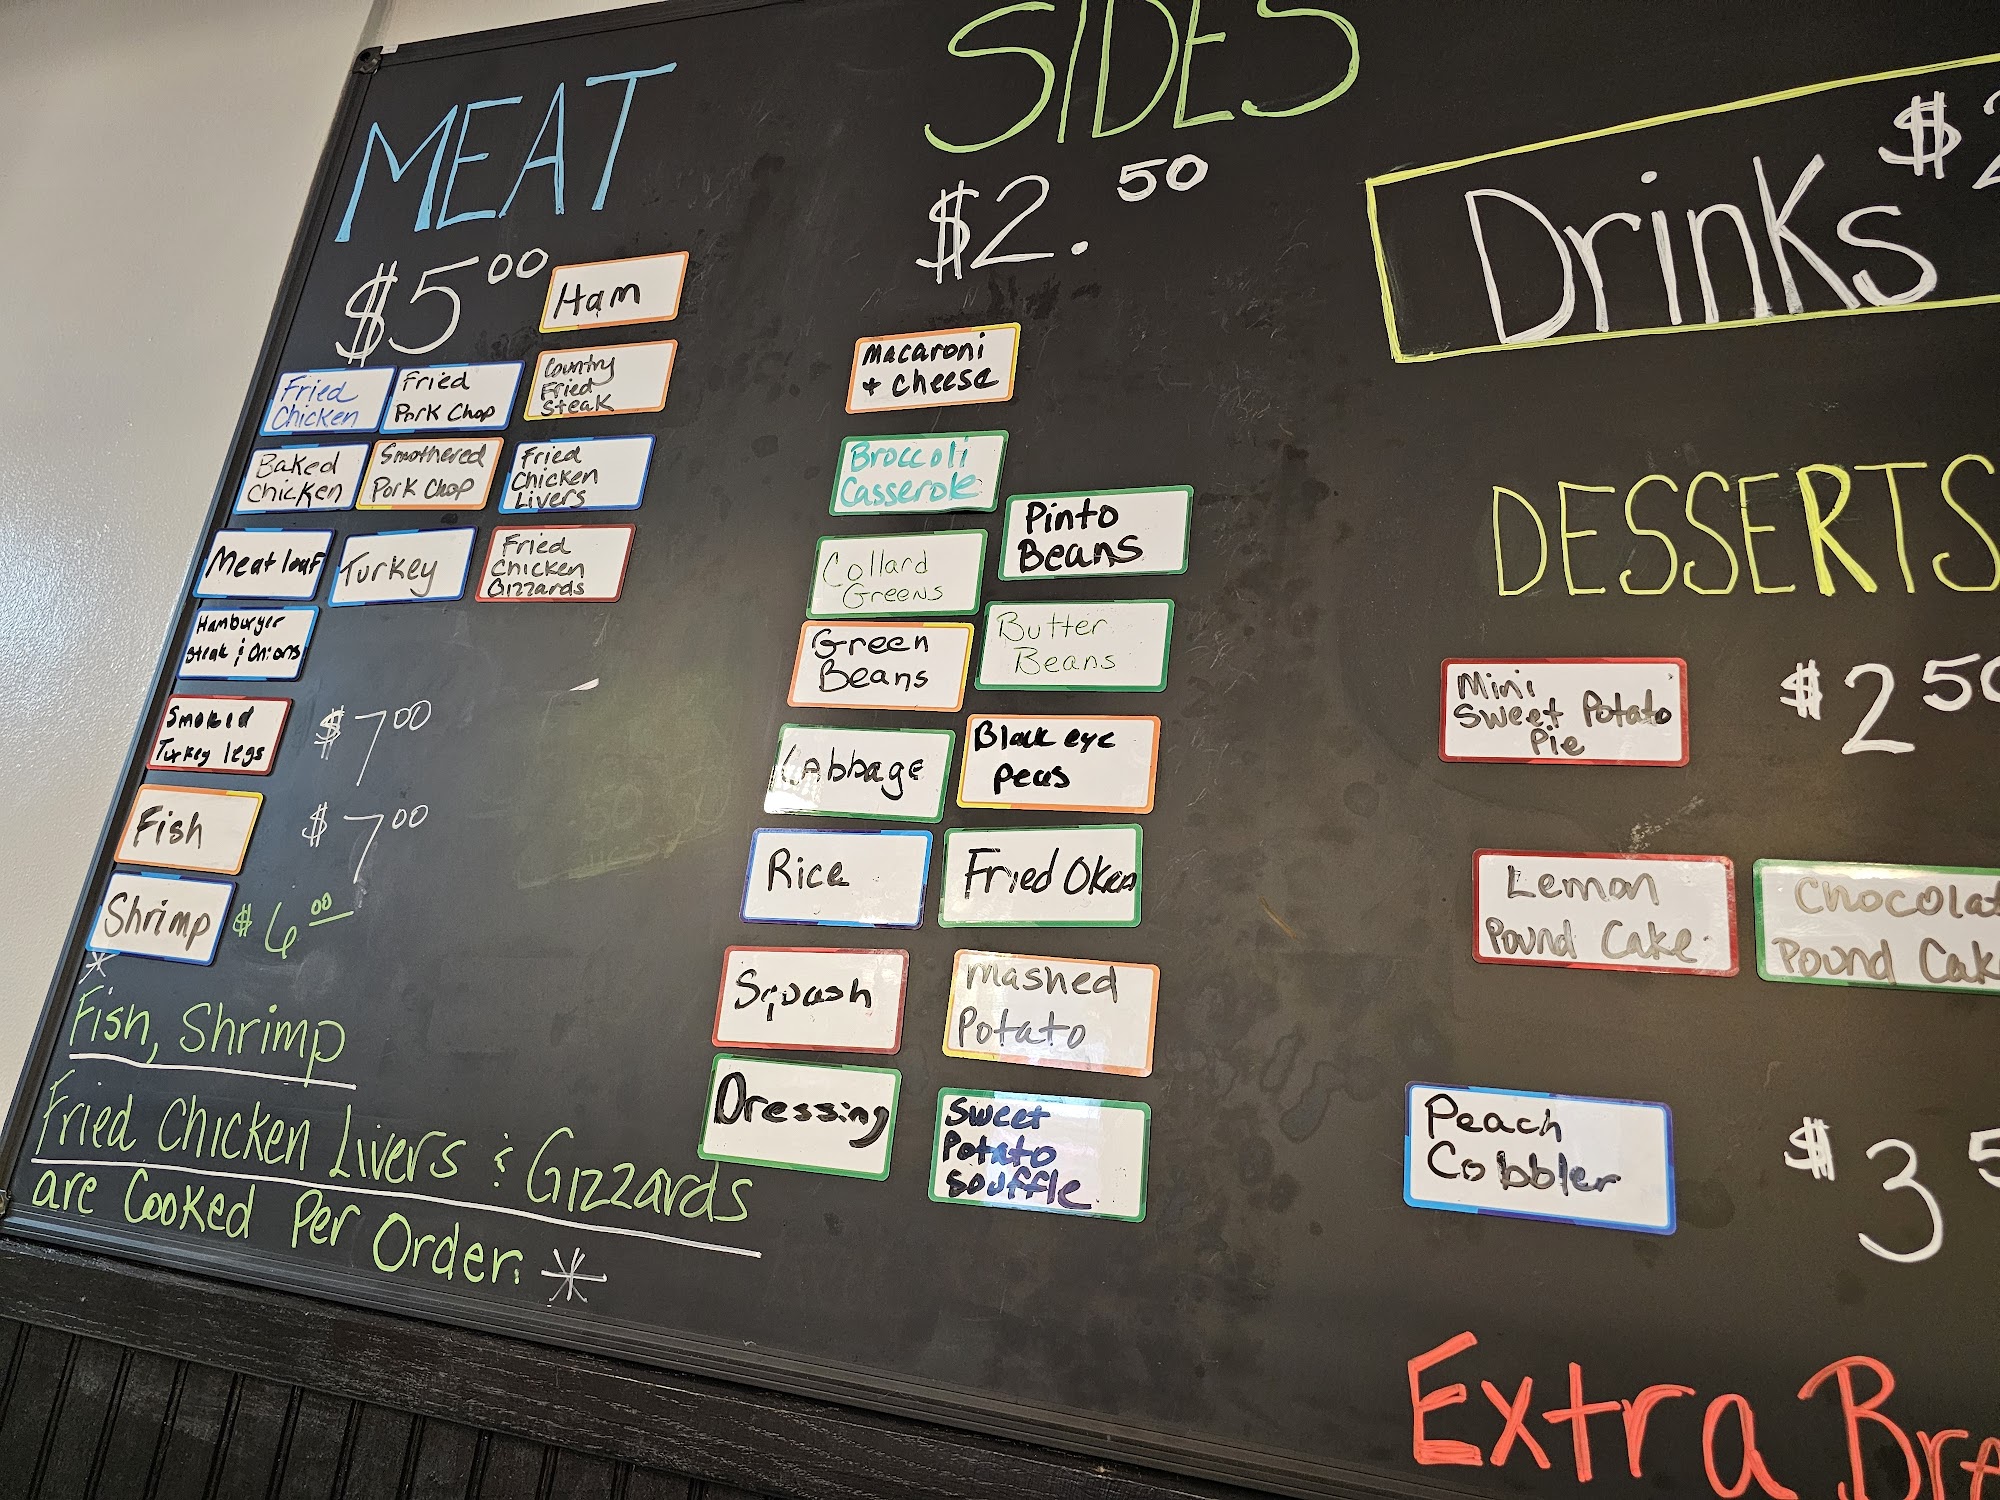 MEAT
$5 00
Ham
Fried
Chicken
Fried
Pork Chop
Country
Fried
Steak
Baked
Chicken
Smothered
Pork Chop
Fried
Chicken
Livers
Meat loaf
Turkey
Fried
Chicken
Gizzards
Hamburger
Steak & Onions
Smoked
Turkey legs
$7 00
Fish
$7 00
Shrimp
$6 00
*
Fish, Shrimp
Fried Chicken Livers & Gizzards
are Cooked Per Order. *
SIDES
$2. 50
Macaroni
+ cheese
Broccoli
Casserole
Pinto
Beans
Collard
Greens
Butter
Beans
Green
Beans
Black eye
peas
Cabbage
Rice
Fried Okra
Squash
Mashed
Potato
Dressing
Sweet
Potato
Souffle
Drinks $2
DESSERTS
Mini
Sweet Potato
Pie
$2 50
Lemon
Pound Cake
Chocolat
Pound Cak
Peach
Cobbler
$3 5
Extra Bre